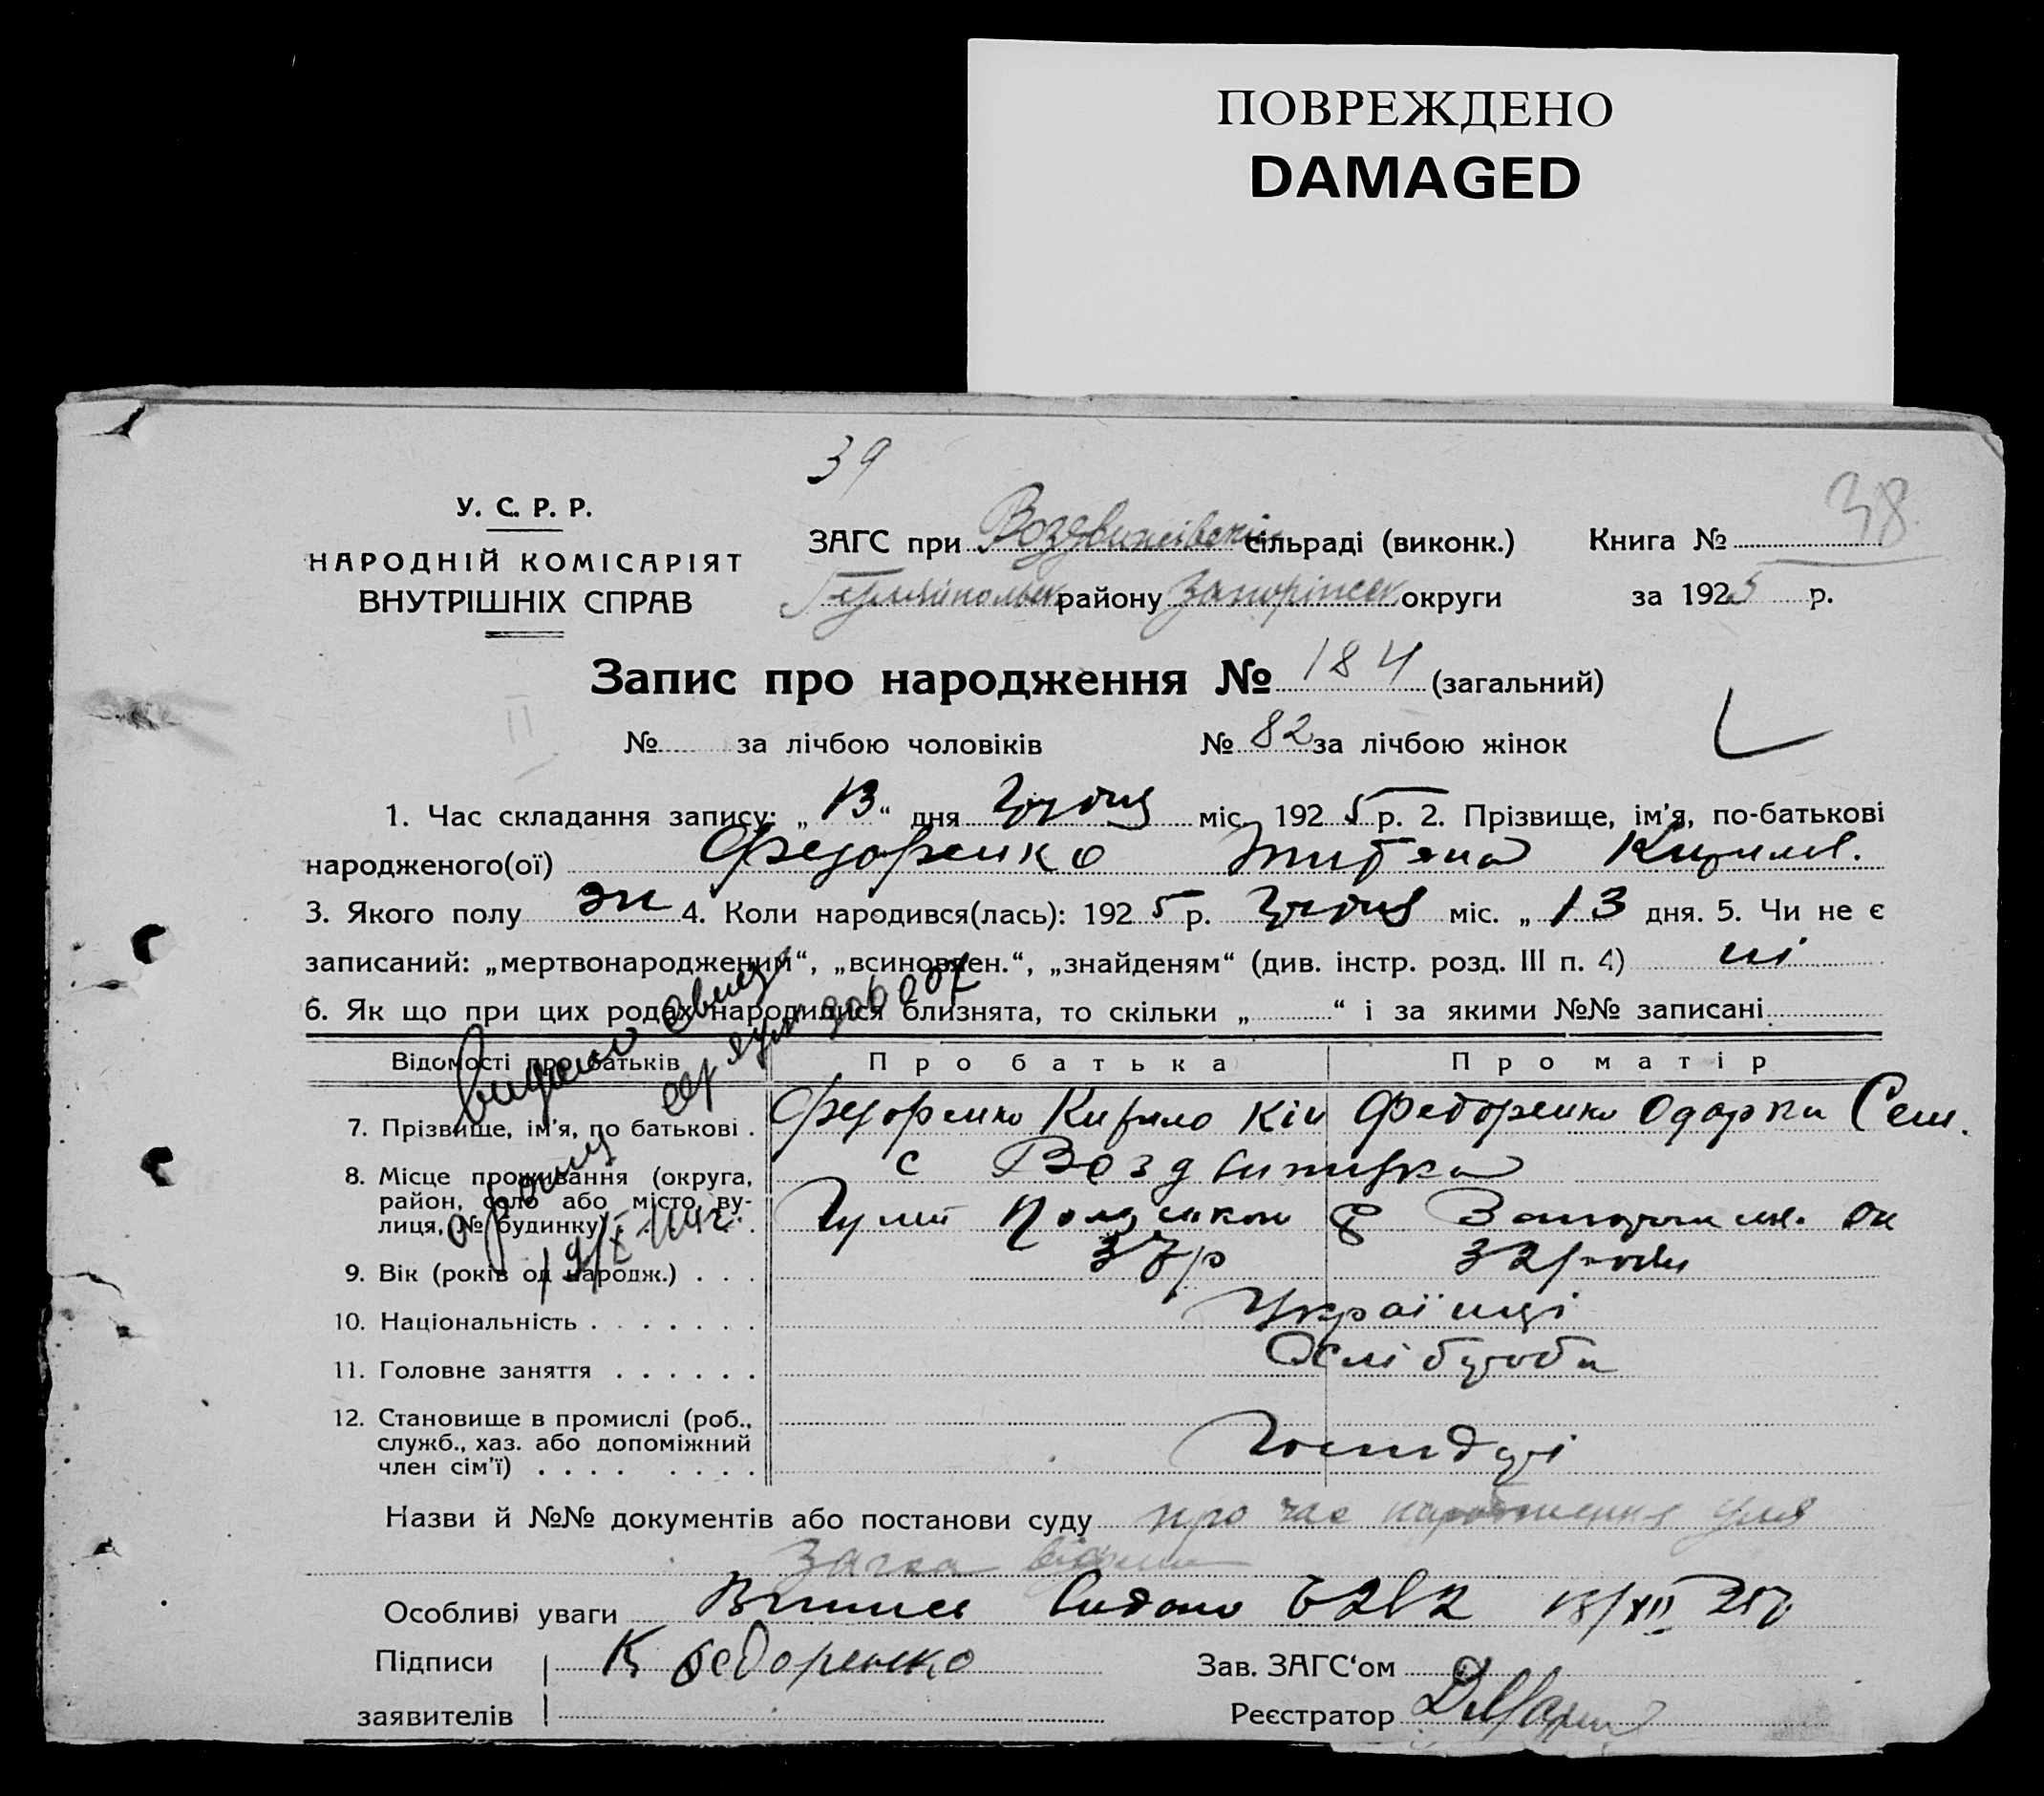 ПОВРЕЖДЕНО
DAMAGED
39
38
У. С. Р. Р.
НАРОДНІЙ КОМІСАРІЯТ
ВНУТРІШНІХ СПРАВ
ЗАГС при Воздвижівській сільраді (виконк.) Книга №
району Запоріжськ округи за 1925 р.
Запис про народження № 184 (загальний)
№ за лічбою чоловіків № 82 за лічбою жінок
1. Час складання запису: „13“ дня грудня міс. 1925 р. 2. Прізвище, ім'я, по-батькові
народженого(ої) Федоренко Титяна Кирилов.
3. Якого полу жи 4. Коли народився(лась): 1925 р. грудня міс. „13 дня. 5. Чи не є
записаний: „мертвонародженим“, „всиновлен.“, „знайденям“ (див. інстр. розд. III п. 4) ні
6. Як що при цих родах народилися близнята, то скільки „ “ і за якими №№ записані
Відомості про батьків Про батька Про матір
7. Прізвище, ім'я, по батькові . Федоренко Кирило Федоренко Одарка Сем.
8. Місце проживання (округа, с Воздвижевка
район, село або місто, ву-
лиця, № будинку)
9. Вік (років од народж.) . . . 37 р 32 роки
10. Національність . . . . . . . Українці
11. Головне заняття . . . . . . Хліборобн
12. Становище в промислі (роб.,
служб., хаз. або допоміжний Господарі
член сім'ї) . . . . . . . .
Назви й №№ документів або постанови суду про час народження
Особливі уваги Випись видано 13/XII 25р
Підписи К Федоренко Зав. ЗАГС'ом
заявителів Реєстратор